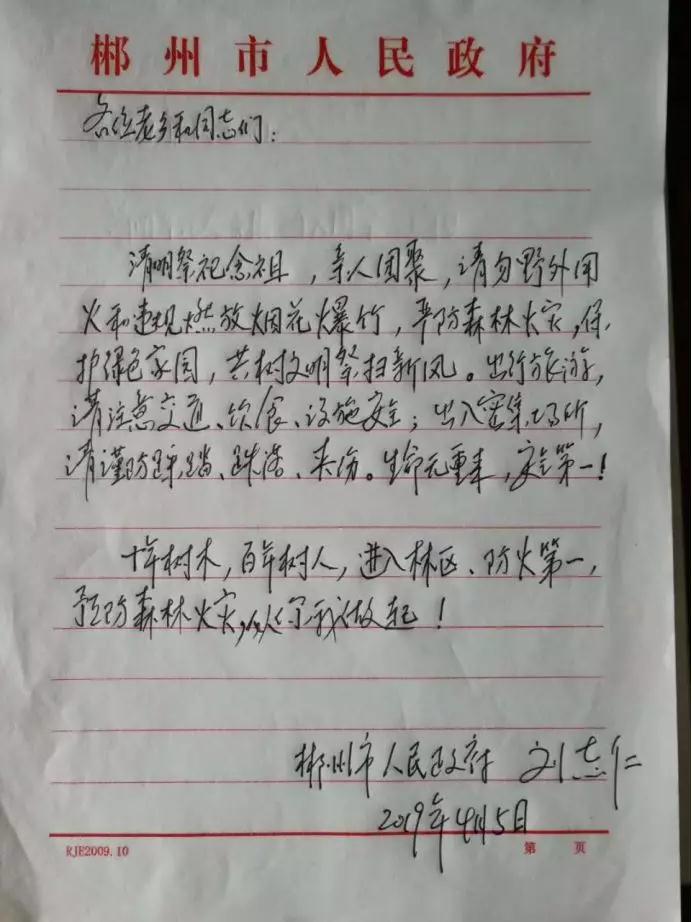 郴州市人民政府
各位老乡和同志们：
清明祭祀念祖，亲人团聚，请勿野外用
火和违规燃放烟花爆竹，严防森林火灾，保
护绿色家园，共树文明祭扫新风。出行旅游，
请注意交通、饮食、设施安全；出入密集场所，
请谨防踩踏、跌落、夹伤。生命无重来，安全第一！
十年树木，百年树人，进入林区、防火第一，
预防森林火灾，从你我做起！
郴州市人民政府 刘志仁
2019年4月5日
RJE2009.10 第 页